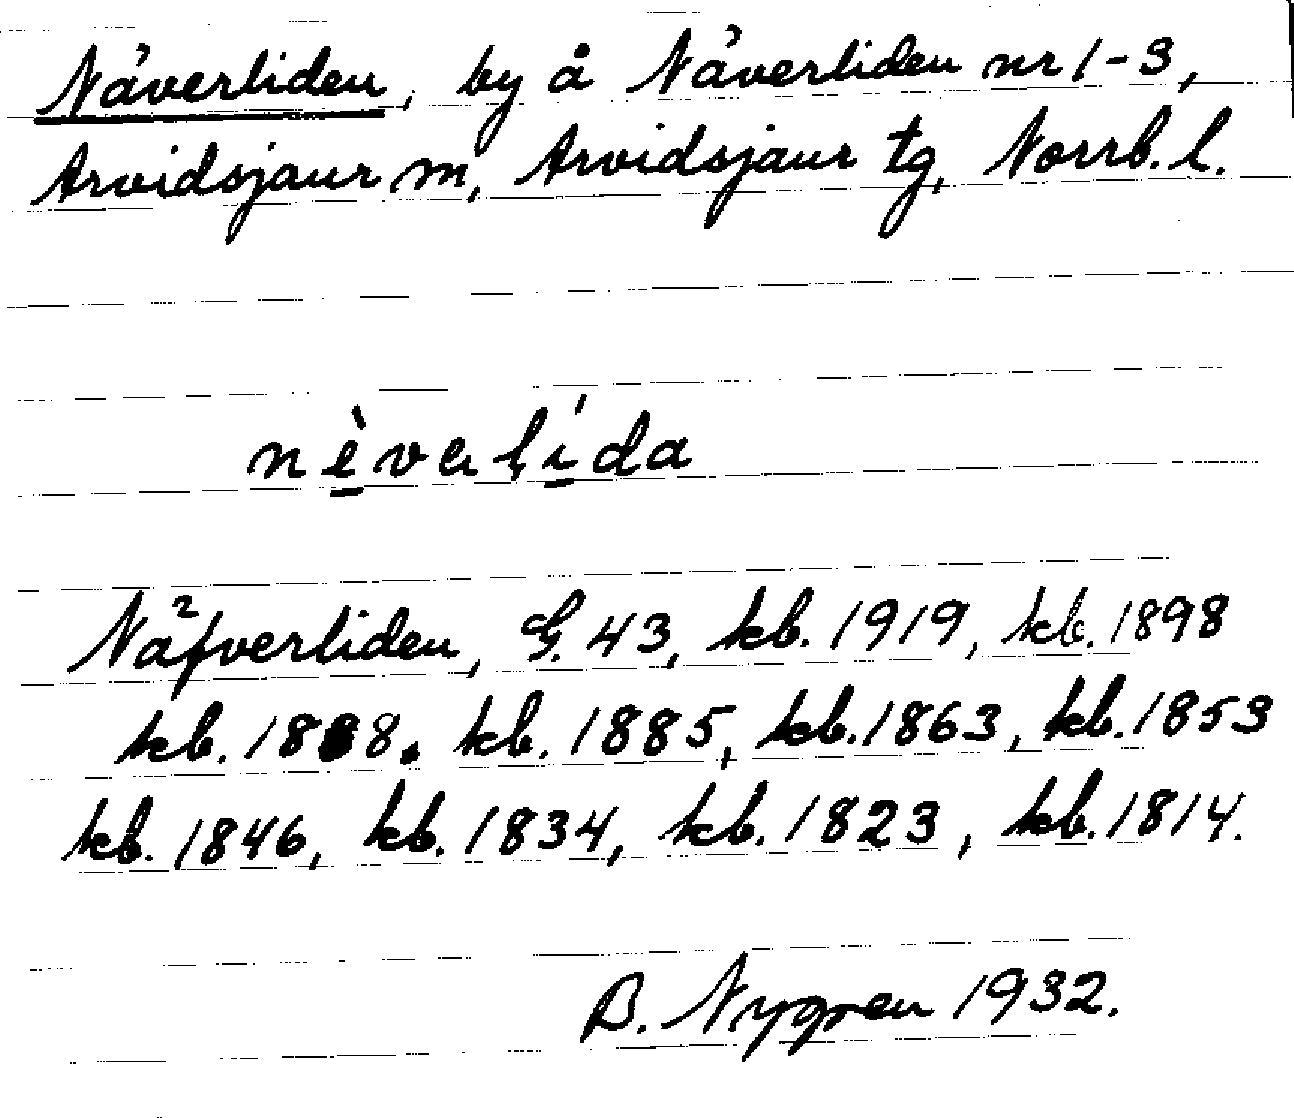 Näverliden, by å Näverliden nr 1-3,
Arvidsjaur m, Arvidsjaur tg, Norrb. l.
nèvalída
Näfverliden, G. 43, kb. 1919, kb. 1898
kb. 1888. kb. 1885, kb. 1863, kb. 1853
kb. 1846, kb. 1834, kb. 1823, kb. 1814.
B. Nygren 1932.